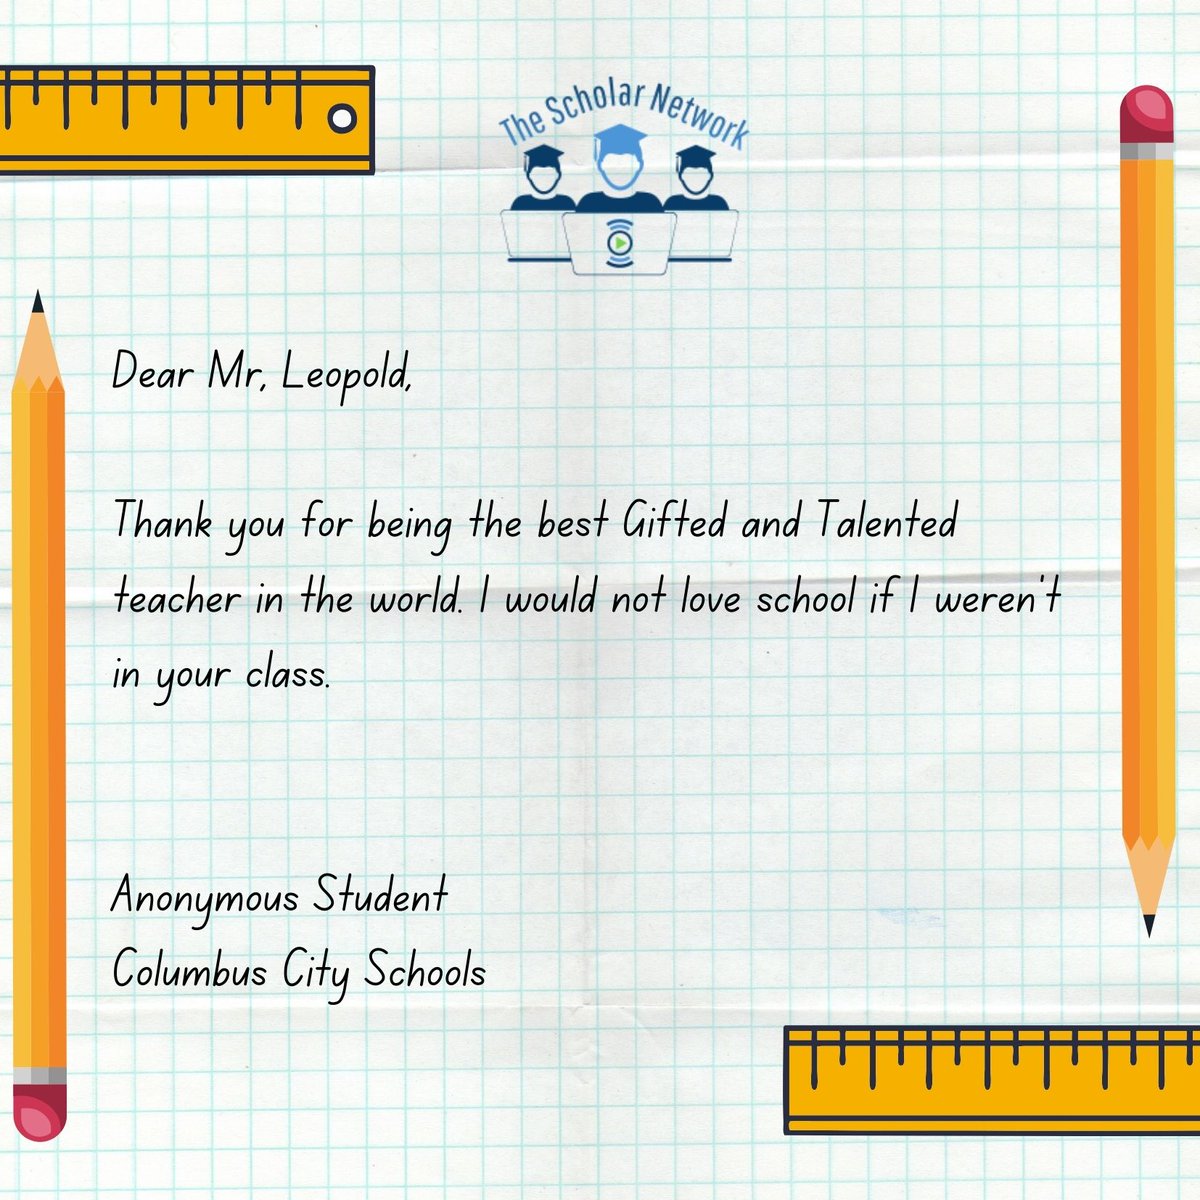 The Scholar Network
Dear Mr, Leopold,
Thank you for being the best Gifted and Talented
teacher in the world. I would not love school if I weren't
in your class.
Anonymous Student
Columbus City Schools